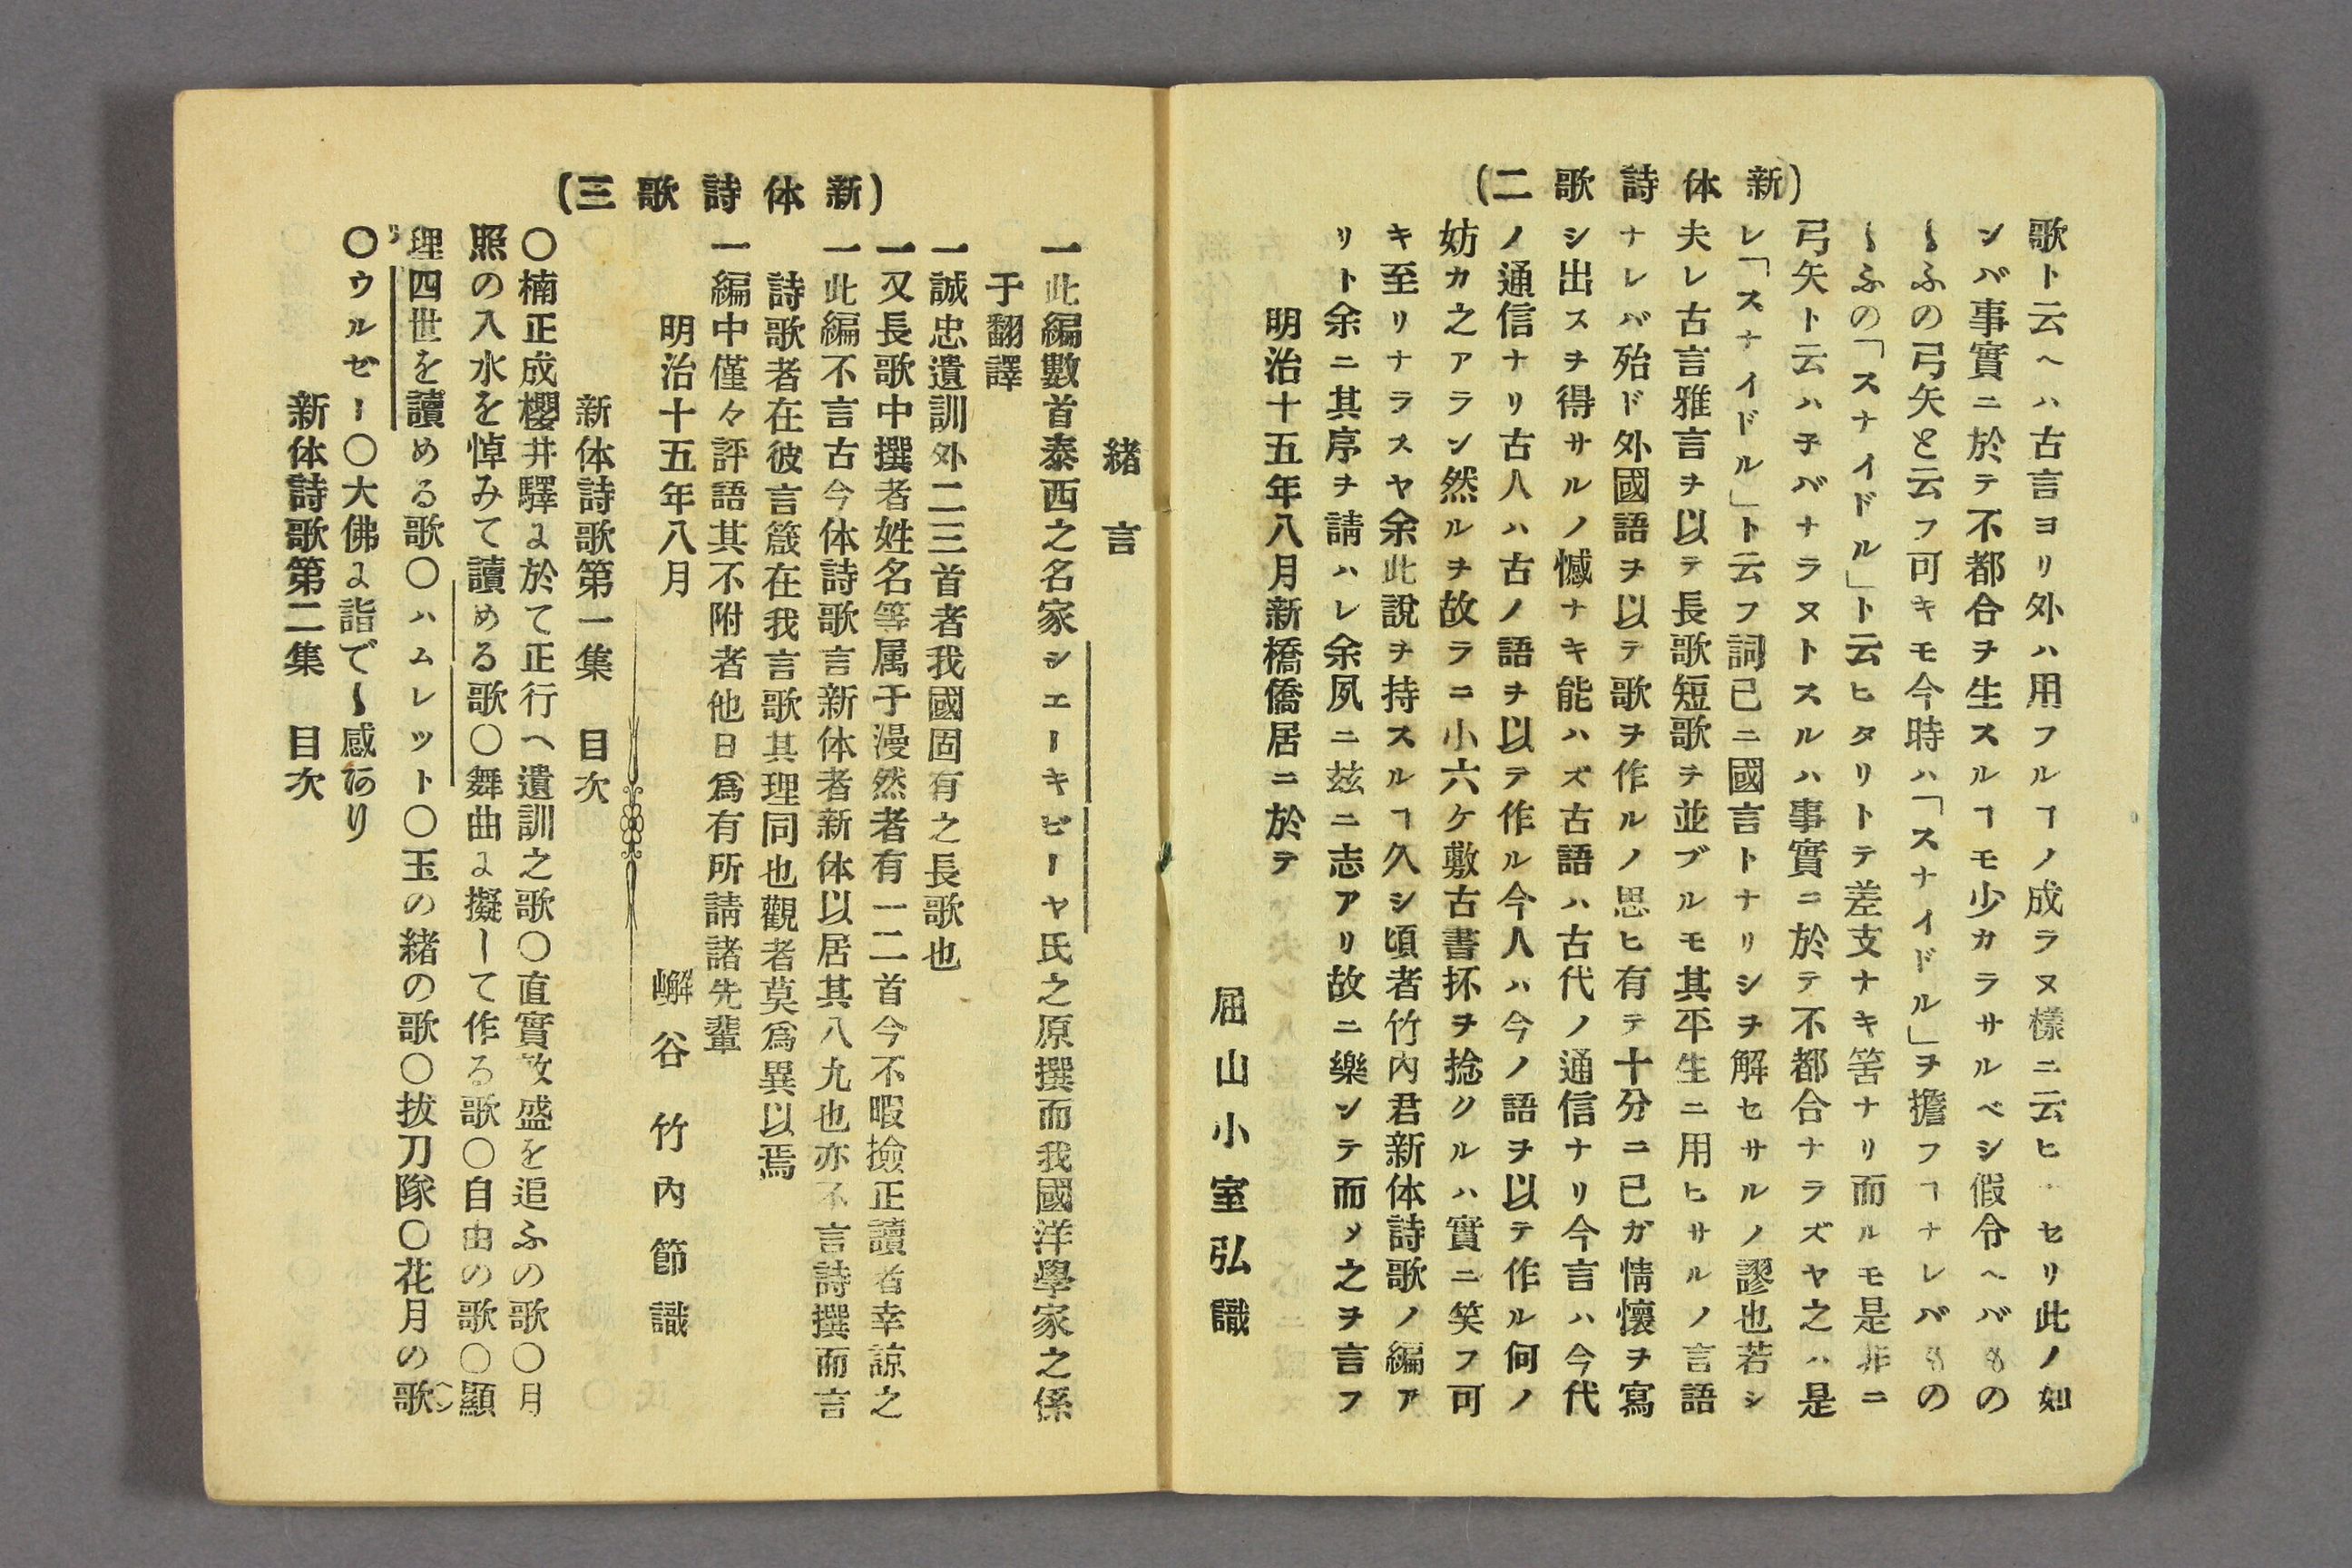 (新体詩歌二)
歌ト云ヘハ古言ヨリ外ハ用フルヿノ成ラヌ樣ニ云ヒ セリ此ノ如
ンバ事實ニ於テ不都合ヲ生スルヿモ少カラサルベシ假令ヘバもの
〻ふの弓矢と云フ可キモ今時ハ「スナイドル」ヲ擔フヿナレバもの
〻ふの「スナイドル」ト云ヒタリトテ差支ナキ筈ナリ而ルモ是非ニ
弓矢ト云ハ子バナラヌトスルハ事實ニ於テ不都合ナラズヤ之ハ是
レ「スナイドル」ト云フ詞已ニ國言トナリシヲ解セサルノ謬也若シ
夫レ古言雅言ヲ以テ長歌短歌ヲ並ブルモ其平生ニ用ヒサルノ言語
ナレバ殆ド外國語ヲ以テ歌ヲ作ルノ思ヒ有テ十分ニ己ガ情懷ヲ寫
シ出スヲ得サルノ憾ナキ能ハズ古語ハ古代ノ通信ナリ今言ハ今代
ノ通信ナリ古人ハ古ノ語ヲ以テ作ル今人ハ今ノ語ヲ以テ作ル何ノ
妨カ之アラン然ルヲ故ラニ小六ケ敷古書抔ヲ捻クルハ實ニ笑フ可
キ至リナラスヤ余此說ヲ持スルヿ久シ頃者竹內君新体詩歌ノ編ア
リト余ニ其序ヲ請ハレ余夙ニ玆ニ志アリ故ニ樂ンテ而〆之ヲ言フ
明治十五年八月新橋僑居ニ於テ
屈山小室弘識
(新体詩歌三)
緒言
一此編數首泰西之名家シエーキピーヤ氏之原撰而我國洋學家之係
于翻譯
一誠忠遺訓外二三首者我國固有之長歌也
一又長歌中撰者姓名等属于漫然者有一二首今不暇撿正讀者幸諒之
一此編不言古今体詩歌言新体者新体以居其八九也亦不言詩撰而言
詩歌者在彼言箴在我言歌其理同也觀者莫爲異以焉
一編中僅々評語其不附者他日爲有所請諸先輩
明治十五年八月
巁谷 竹內節識
新体詩歌第一集 目次
〇楠正成櫻井驛に於て正行へ遺訓之歌〇直實敦盛を追ふの歌〇月
照の入水を悼みて讀める歌〇舞曲に擬して作る歌〇自由の歌〇顯
理四世を讀める歌〇ハムレット〇玉の緒の歌〇拔刀隊〇花月の歌
〇ウルゼー〇大佛に詣で〻感あり
新体詩歌第二集 目次